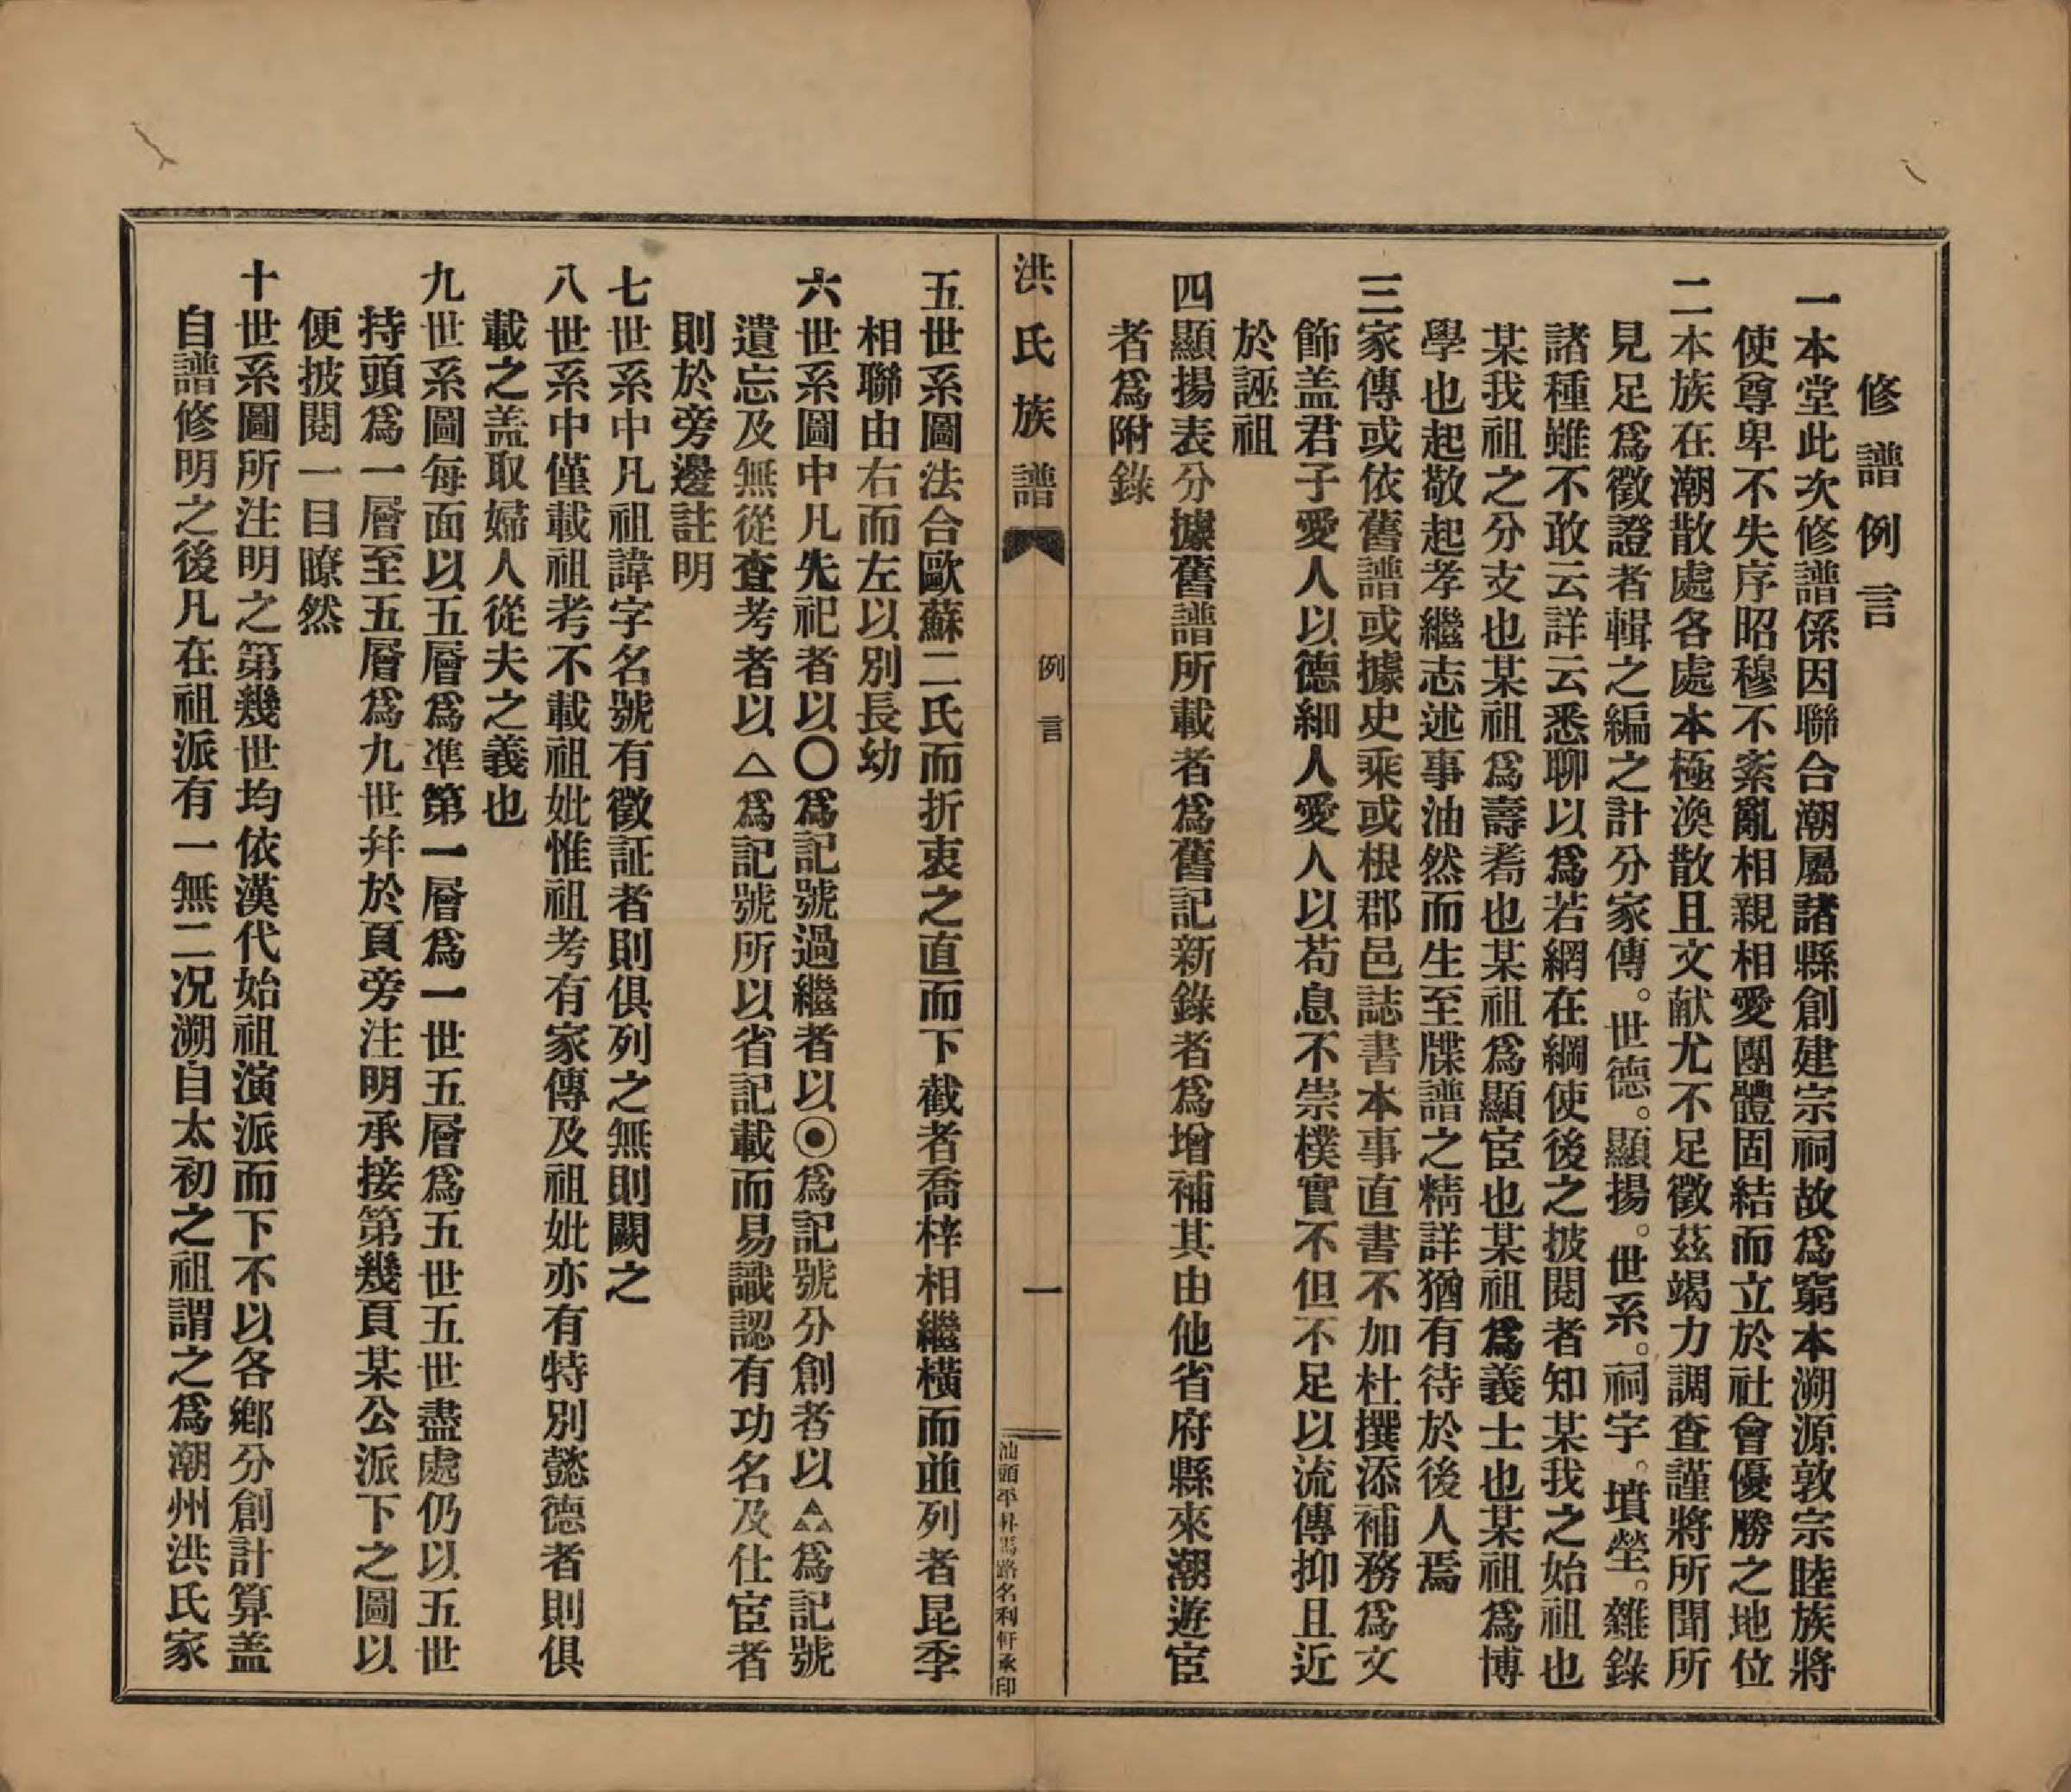 修譜例言
一本堂此次修譜係因聯合潮屬諸縣創建宗祠故爲窮本溯源敦宗睦族將
使尊卑不失序昭穆不紊亂相親相愛團體固結而立於社會優勝之地位
二本族在潮散處各處本極渙散且文献尤不足徵茲竭力調查謹將所聞所
見足爲徵證者輯之編之計分家傳。世德。顯揚。世系。祠宇。墳塋。雜錄
諸種雖不敢云詳云悉聊以爲若網在綱使後之披閱者知某我之始祖也
某我祖之分支也某祖爲壽耇也某祖爲顯宦也某祖爲義士也某祖爲博
學也起敬起孝繼志述事油然而生至牒譜之精詳猶有待於後人焉
三家傳或依舊譜或據史乘或根郡邑誌書本事直書不加杜撰添補務爲文
飾盖君子愛人以德細人愛人以苟息不崇樸實不但不足以流傳抑且近
於誣祖
四顯揚表分據舊譜所載者爲舊記新錄者爲增補其由他省府縣來潮遊宦
者爲附錄
洪氏族譜
例言
一
汕頭平馬路名利軒承印
五世系圖法合歐蘇二氏而折衷之直而下截者喬梓相繼橫而並列者昆季
相聯由右而左以別長幼
六世系圖中凡先祀者以〇爲記號過繼者以◉爲記號分創者以△△△爲記號
遺忘及無從查考者以△爲記號所以省記載而易識認有功名及仕宦者
則於旁邊註明
七世系中凡祖諱字名號有徵証者則俱列之無則闕之
八世系中僅載祖考不載祖妣惟祖考有家傳及祖妣亦有特別懿德者則俱
載之盖取婦人從夫之義也
九世系圖每面以五層爲準第一層爲一世五層爲五世五世盡處仍以五世
持頭爲一層至五層爲九世幷於頁旁注明承接第幾頁某公派下之圖以
便披閱一目瞭然
十世系圖所注明之第幾世均依漢代始祖演派而下不以各鄉分創計算盖
自譜修明之後凡在祖派有一無二况溯自太初之祖謂之爲潮州洪氏家